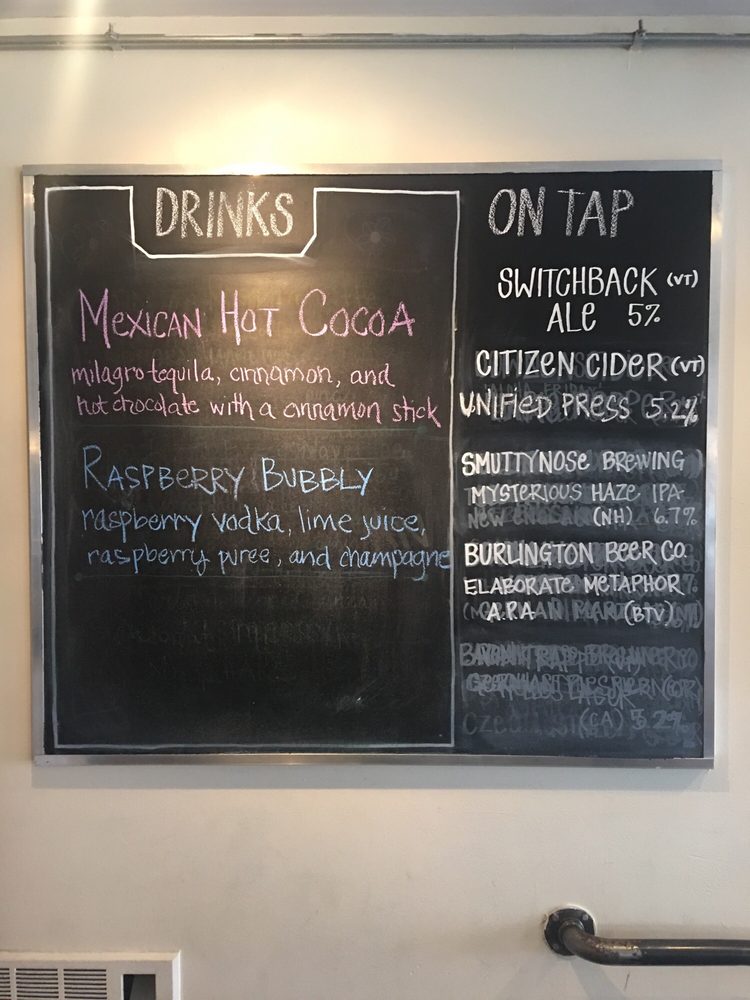 DRINKS
MEXICAN HOT COCOA
milagro tequila, cinnamon, and
hot chocolate with a cinnamon stick
RASPBERRY BUBBLY
raspberry vodka, lime juice,
raspberry puree, and champagne
ON TAP
SWITCHBACK (VT)
ALE 5%
CITIZEN CIDER (VT)
UNIFIED PRESS 5.2%
SMUTTYNOSE BREWING
MYSTERIOUS HAZE IPA
(NH) 6.7%
BURLINGTON BEER CO.
ELABORATE METAPHOR
A.P.A (BTV)
(CA) 5.2%